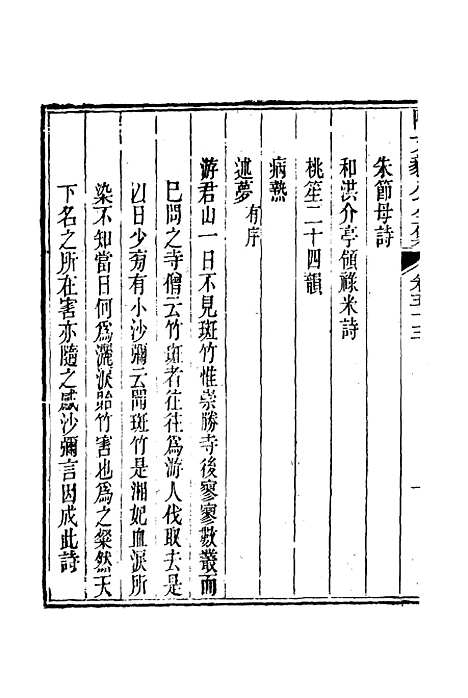 文毅公全集 卷五十三 一
朱節母詩
和洪介亭領祿米詩
桃笙二十四韻
病熱
述夢有序
游君山一日不見斑竹惟崇勝寺後寥寥數叢而
已問之寺僧云竹斑者往往為游人伐取去是
以日少旁有小沙彌云聞斑竹是湘妃血淚所
染不知當日何為灑淚貽竹害也為之粲然天
下名之所在害亦隨之感沙彌言因成此詩